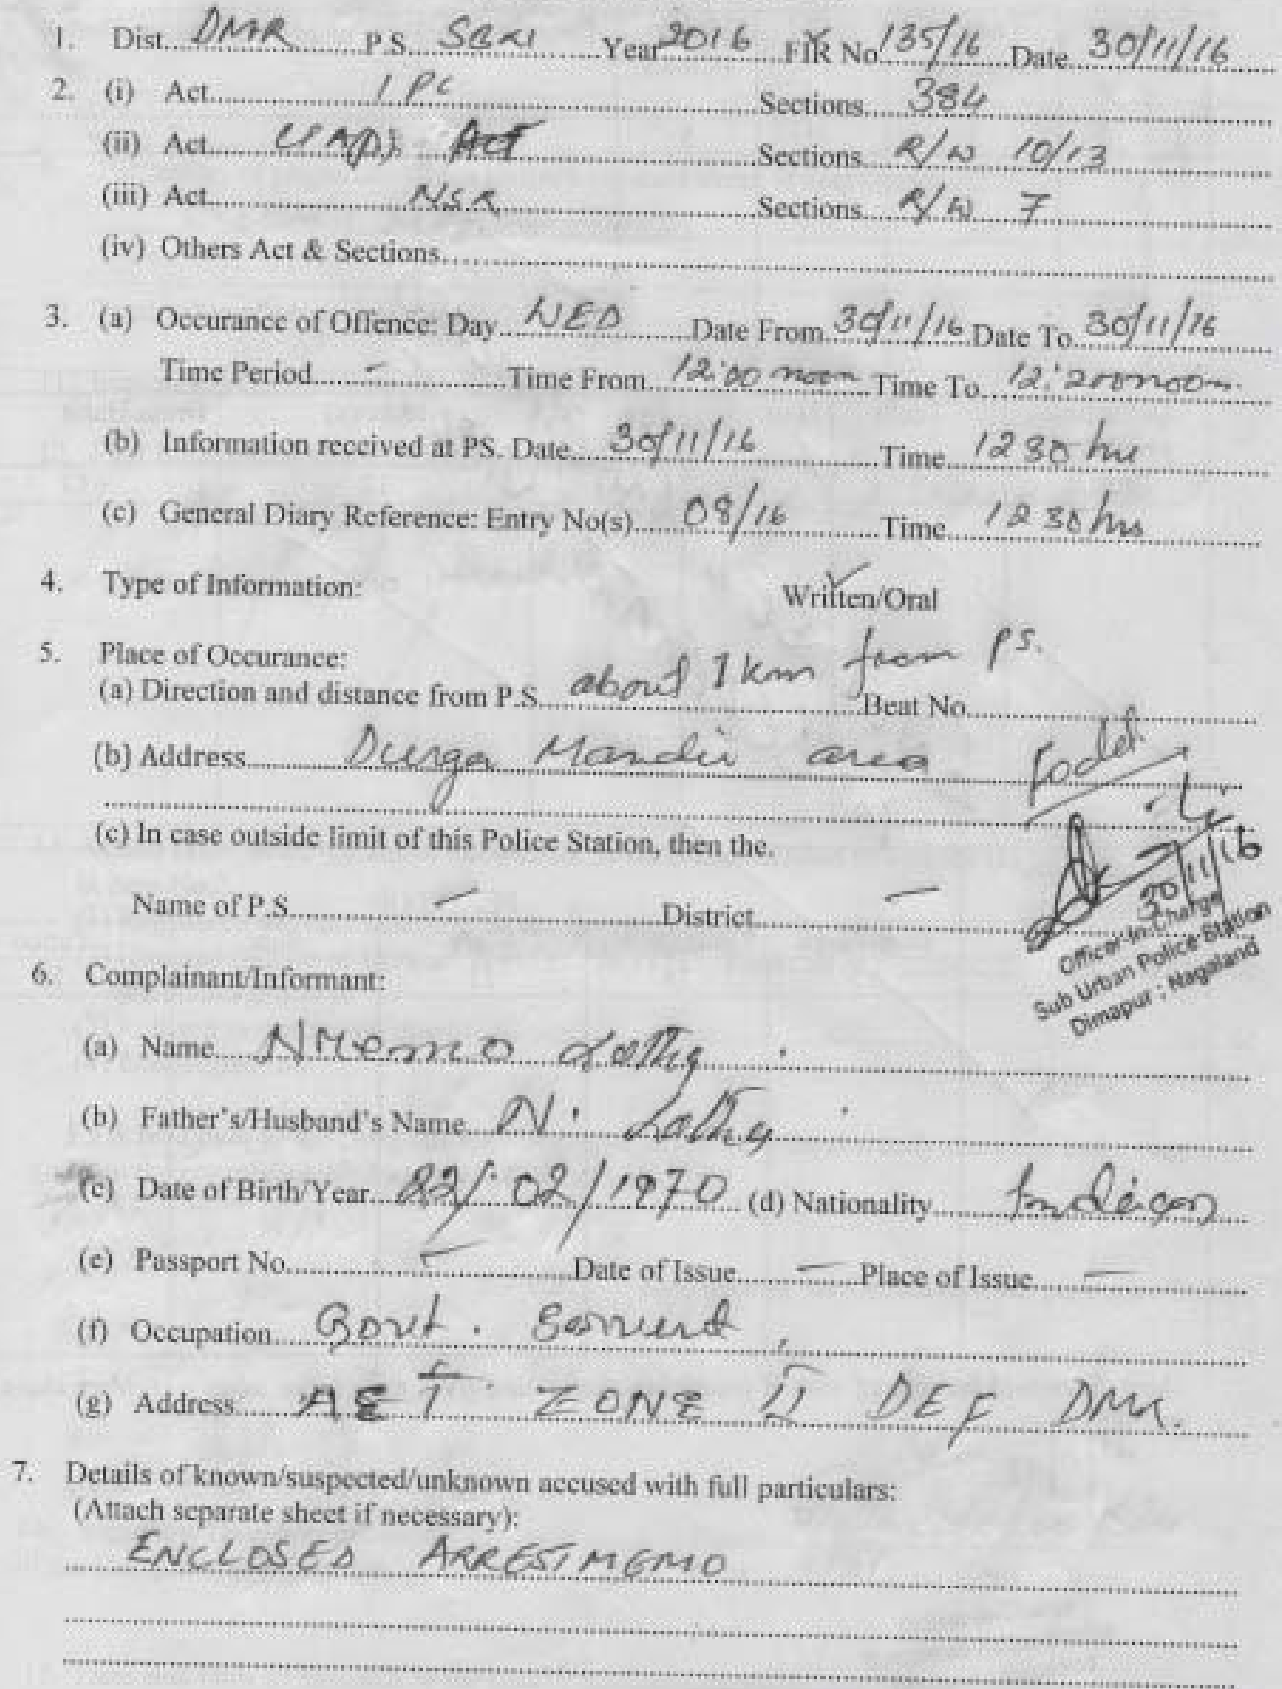 1. Dist. DMR P.S. SBRI Year 2016 FIR No 135/16 Date 30/11/16
2. (i) Act IPC Sections 384
(ii) Act UA(P) Act Sections R/W 10/13
(iii) Act NSR Sections R/W 7
(iv) Others Act & Sections
3. (a) Occurance of Offence: Day WED Date From 30/11/16 Date To 30/11/16
Time Period - Time From 12:00 noon Time To 12:20 noon
(b) Information received at PS. Date 30/11/16 Time 1230 hrs
(c) General Diary Reference: Entry No(s) 08/16 Time 1230 hrs
4. Type of Information: Written/Oral
5. Place of Occurance:
(a) Direction and distance from P.S. about 1 km from PS. Beat No
(b) Address Durga Mandir area
(c) In case outside limit of this Police Station, then the.
Name of P.S - District -
30/11/16
Officer-In-Charge
Sub Urban Police Station
Dimapur ; Nagaland
6. Complainant/Informant:
(a) Name Nkemo Lotha
(b) Father's/Husband's Name N. Lotha
(c) Date of Birth/Year 22/02/1970 (d) Nationality Indian
(e) Passport No. - Date of Issue - Place of Issue -
(f) Occupation Govt. Servant
(g) Address AET ZONE II DEF DMR.
7. Details of known/suspected/unknown accused with full particulars:
(Attach separate sheet if necessary):
ENCLOSED ARREST MEMO